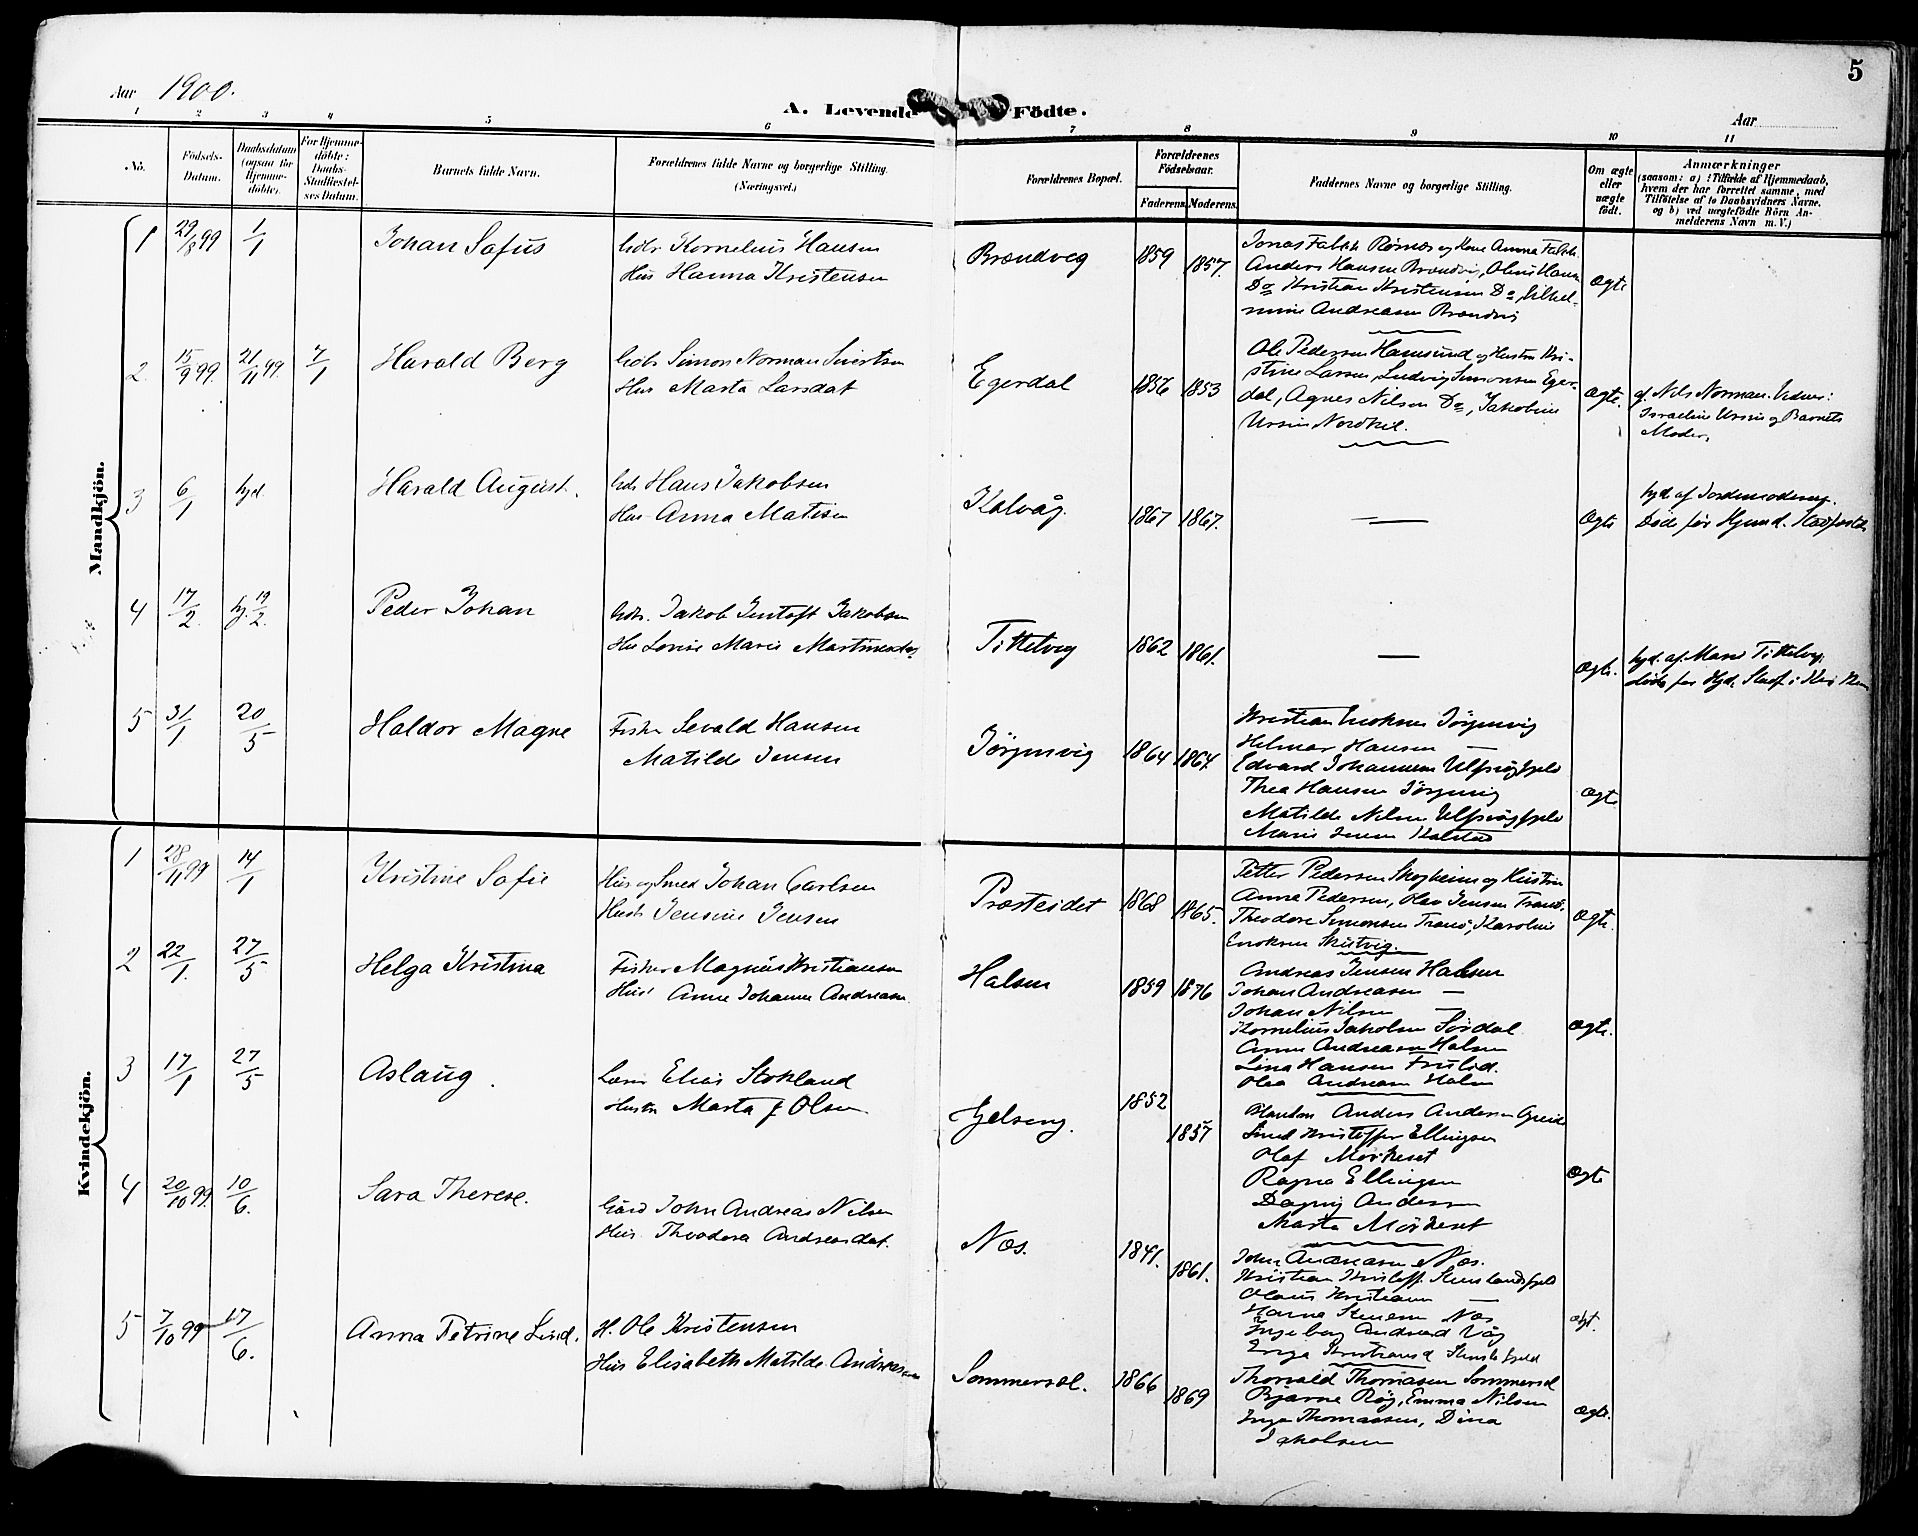 5
Aar 1900.
A. Levende Födte.
Aar
1 2 3 4 5 6 7 8 9 10 11
No.
Födsels-
Datum.
Daabsdatum
(ogsaa for
Hjemme-
döbte).
For Hjemme-
döbte:
Daabs-
Stadfæstel-
ses Datum.
Barnets fulde Navn.
Forældrenes fulde Navne og borgerlige Stilling.
(Næringsvei.)
Forældrenes Bopæl.
Forældrenes
Födselsaar.
Faderens. Moderens.
Faddernes Navne og borgerlige Stilling.
Om ægte
eller
uægte
födt.
Anmærkninger
(saasom: a) i Tilfælde af Hjemmedaab,
hvem der har forrettet samme, med
Tilföielse af to Daabsvidners Navne.
og b) ved uægtefödte Börn An-
melderens Navn m. V.)
Mandkjön.
1 29/8 99 1/1 Johan Sofus
Gdbr Kornelius Hansen
Hus Hanna Kristensen
Brændveg 1859 1857.
Jonas Falch Rørnes og Kone Anna Falch.
Anders Hansen Brændvi, Oluf Hansen
Do Kristian Kristensen Do,
Andreasen Brændvi
Ægte
2. 15/9 99. 21/11 99. 7/1 Harald Berg
Gdbr Simon Norman Sivertsen
Hus Marta Larsdat
Egerdal 1856 1853
Ole Pedersen Hamsund og Hustru Kri-
stine Larsen, Ludvig Simonsen Eger-
dal, Agnes Nilsen Do, Jakobine
Ursin Nordkil.
Ægte.
af Nils Norman. Vidner:
Israeline Ursin og Barnets
Moder.
3 6/1 hjd. Harald August.
Gdbr Hans Jakobsen
Hus Anna Matisen
Kalvåg. 1867 1867.
—
Ægte
hjd. af Jordemoderen.
Død før Hjemd. Stadfæstels
4 17/2. hj. 19/2. Peder Johan
Gdbr. Jakob Gustaft Jakobsen
Hus Lovise Marie Martinesdat
Tittelvig 1862 1861.
—
Ægte.
hjd. af Marie Tittelvig.
døde før Hjd. Stadf. i
5 31/1 20/5 Haldor Magne
Fisker Sevald Hansen
Matilde Jensen
Jörgensvig 1864 1864.
Kristian Enoksen Jörgensvig
Helmar Hansen —
Edvard Johannesen Ulfsvågfjeld
Thea Hansen Jörgensvig
Matilde Nilsen Ulfsvågfjeld
Marie Jensen Kalstad
Ægte
Kvindekjön.
1 28/11 99 14/1 Kristine Sofie
Hus og Smed Johan Carlsen
Hustr Jensine Jensen
Præsteidet 1868 1865.
Petter Pedersen Skogheim og Hustru
Anna Pedersen, Olav Jensen Tranö,
Theodore Simonsen Tranö, Karoline
Enoksen Skutvig.
Ægte.
2 22/1. 27/5 Helga Kristina
Fisker Magnus Kristiansen
Hus' Anne Johanne Andreasen
Halsen 1859 1876
Andreas Jensen Halsen
Johan Andreasen —
Johan Nilsen —
Kornelius Jakobsen Sördal
Anne Andreasen Halsen
Lina Hansen
Olea Andreasen Halsen
Ægte.
3 17/1 27/5 Aslaug.
Lærer Elias Stokland
Hustru Marta f Olsen
Gjelseng. 1852 1857
Anders Andersen
Smed Kristoffer Ellingsen
Olaf Mörkeset
Ragna Ellingsen
Dagny Andersen
Marta Mörkeset
Ægte
4 20/10 99. 10/6. Sara Therese.
Gård John Andreas Nilsen
Hus. Theodora Andreasdat.
Næs. 1841. 1861.
John Andreasen Næs.
Kristian Kristoff.
Olaus Kristiansen —
Hanna Stensen Næs
Ingeborg Våg
Inga
Ægt.
5 7/10 99 17/6. Anna Petrine Lind.
H. Ole Kristensen
Hus Elisabeth Matilde Andreassen
Sommersel. 1866 1869
Thorvald Thomasen Sommersel
Bjarne Røg, Emma Nilsen
Inga Thomassen, Dina
Jakobsen
Ægte.